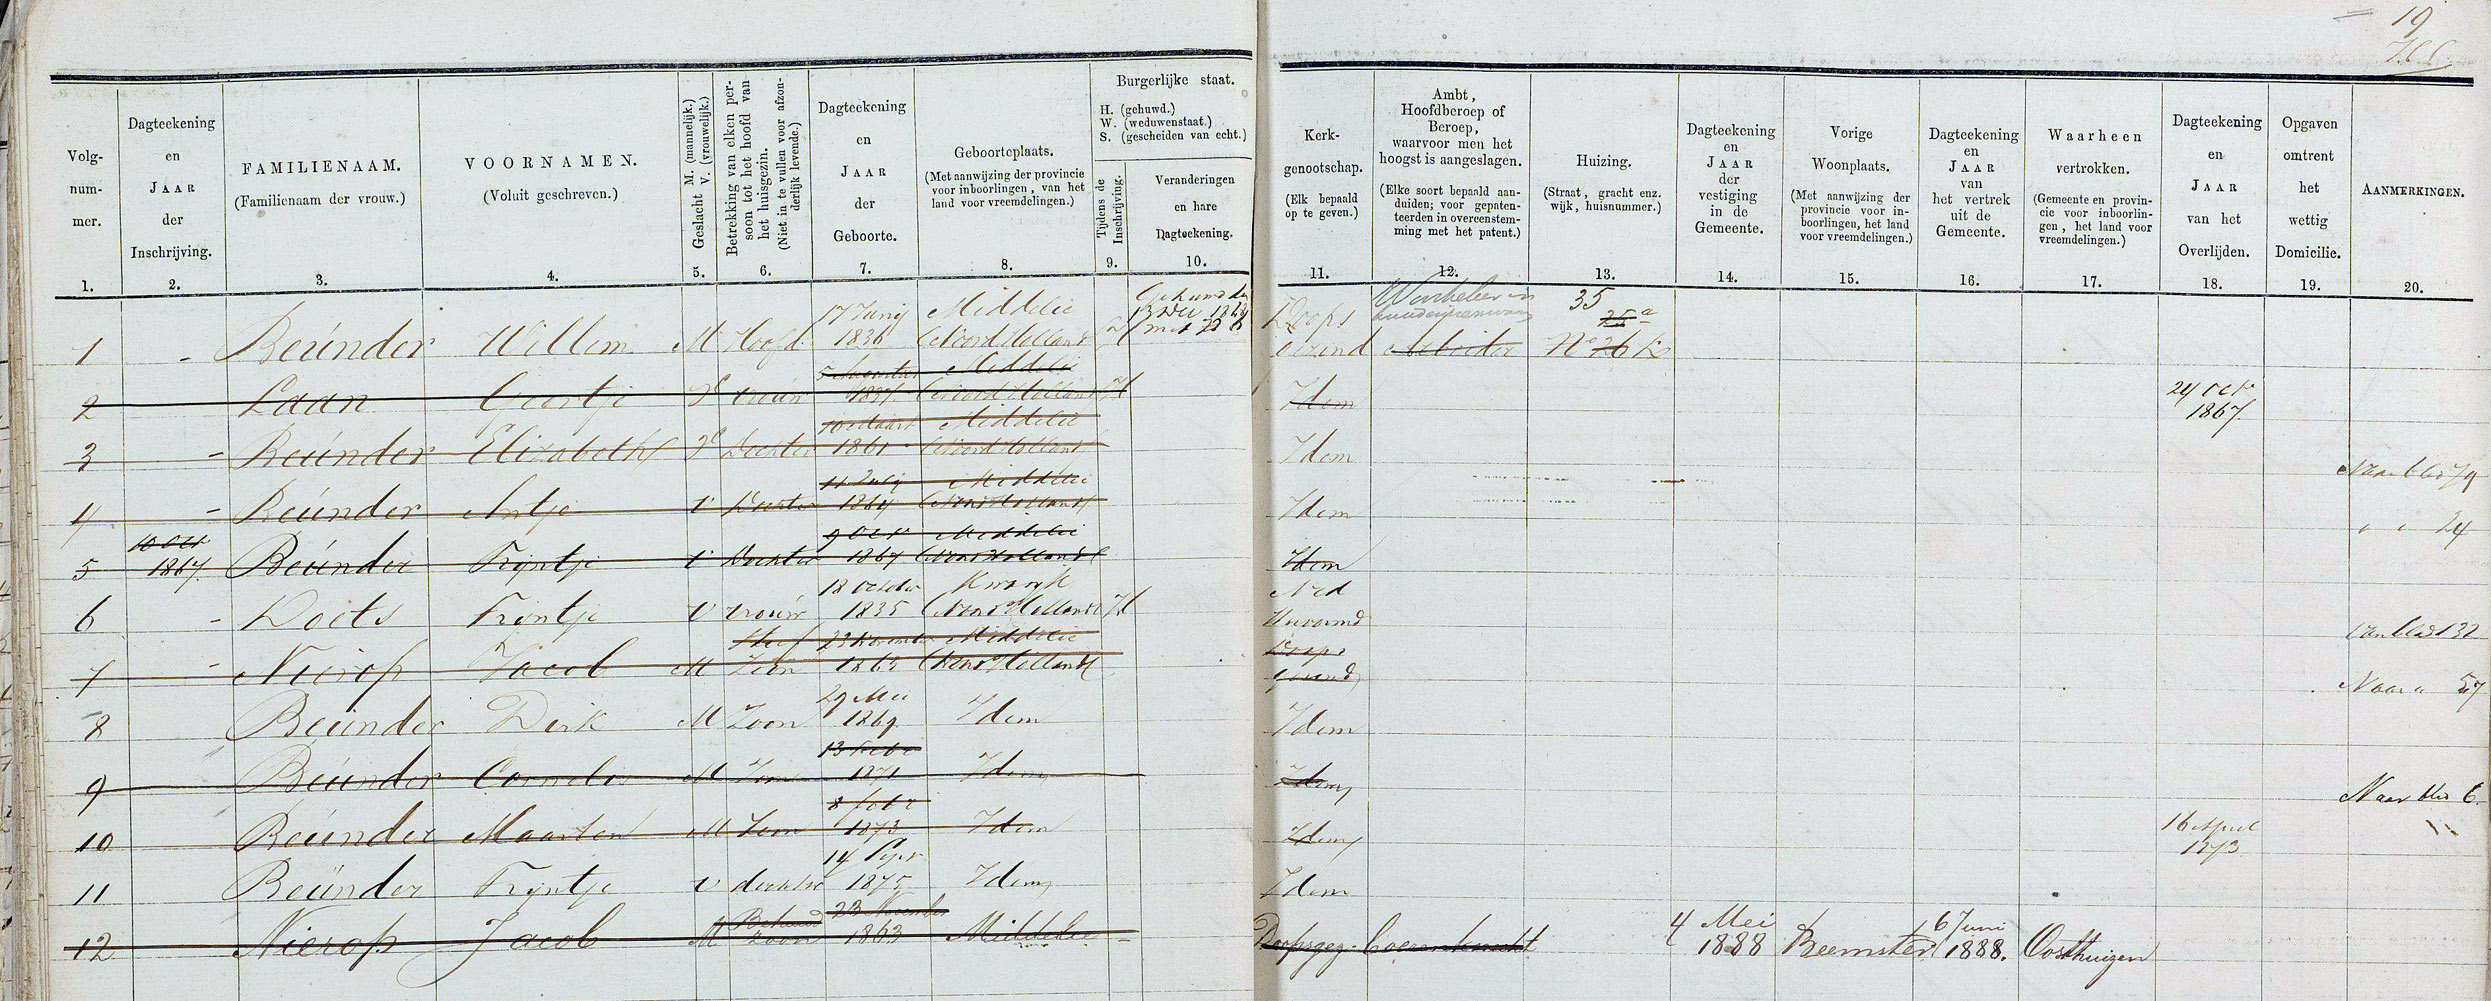 19
Volg-
num-
mer.
1.
Dagteekening
en
JAAR
der
Inschrijving.
2.
FAMILIENAAM.
(Familienaam der vrouw.)
3.
VOORNAMEN.
(Voluit geschreven.)
4.
Geslacht M. (mannelijk.)
V. (vrouwelijk.)
5.
Betrekking van elken per-
soon tot het hoofd van
het huisgezin.
(Niet in te vullen voor afzon-
derlijk levende.)
6.
Dagteekening
en
JAAR
der
Geboorte.
7.
Geboorteplaats.
(Met aanwijzing der provincie
voor inboorlingen, van het
land voor vreemdelingen.)
8.
Burgerlijke staat.
H. (gehuwd.)
W. (weduwenstaat.)
S. (gescheiden van echt.)
Tijdens de
Inschrijving.
9.
Veranderingen
en hare
Dagteekening.
10.
Kerk-
genootschap.
(Elk bepaald
op te geven.)
11.
Ambt,
Hoofdberoep of
Beroep,
waarvoor men het
hoogst is aangeslagen.
(Elke soort bepaald aan-
duiden; voor gepaten-
teerden in overeenstem-
ming met het patent.)
12.
Huizing.
(Straat, gracht enz.
wijk, huisnummer.)
13.
Dagteekening
en
JAAR
der
vestiging
in de
Gemeente.
14.
Vorige
Woonplaats.
(Met aanwijzing der
provincie voor in-
boorlingen, het land
voor vreemdelingen.)
15.
Dagteekening
en
JAAR
van
het vertrek
uit de
Gemeente.
16.
Waarheen
vertrokken.
(Gemeente en provin-
cie voor inboorlin-
gen, het land voor
vreemdelingen.)
17.
Dagteekening
en
JAAR
van het
Overlijden.
18.
Opgaven
omtrent
het
wettig
Domicilie.
19.
AANMERKINGEN.
20.
17 Junij Middelie Gehuwd den
1 - Beünder Willem M Hoofd 1836 (Noord Holland Doops
gezind Arbeider 35 25a No 26
Middelie
2 Laan Geertje V vrouw (Noord Holland H Idem 24 Oct 1867
10 Maart Middelie
3 - Beünder Elizabeth V Dochter 1861 (Noord Holland Idem Naar blad 79
11 Julij Middelie
4 - Beünder Antje V Dochter 1864 (Noord Holland Idem " " 24
10 Oct 9 Oct Middelie
5 1867 Beünder Trijntje V Dochter 1867 (Noord Holland Idem
18 October Kwadijk Ned
6 - Doets Trijntje V vrouw 1835 (Noord Holland H Hervormd Van blad 132
Stief 23 November Middelie Doops
7 - Nierop Jacob M Zoon 1863 (Noord Holland gezind Naar " 57
29 Mei
8 Beünder Dirk M Zoon 1869 Idem Idem
13 Febr
9 Beünder Cornelis M Zoon 1871 Idem Idem Naar blad 6
8 Febr 16 April
10 Beünder Maarten M Zoon 1873 Idem Idem 1873
14
11 Beünder Trijntje V dochter 1875 Idem Idem
Behuwd 23 November 4 Mei 6 Juni
12 Nierop Jacob M zoon 1863 Middelie - Doopsgez. Boerenknecht 1888 Beemster 1888. Oosthuizen